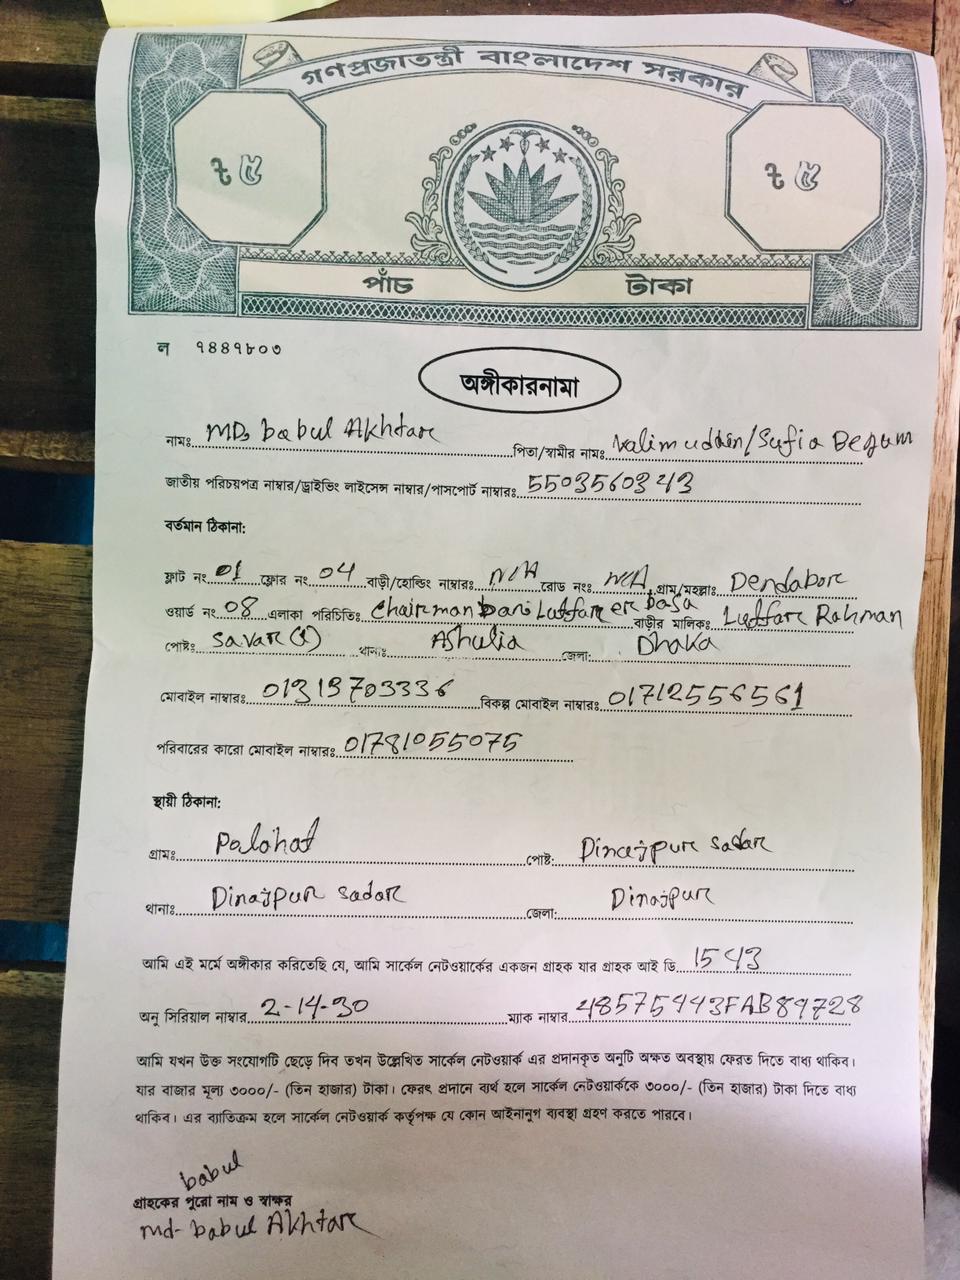 গণপ্রজাতন্ত্রী বাংলাদেশ সরকার
৳ ৫ ৳ ৫
পাঁচ টাকা
ল ৭৪৪৭৮০৩
অঙ্গীকারনামা
নামঃ MD. babul Akhtar পিতা/স্বামীর নামঃ Valim uddin/Sufia Begum
জাতীয় পরিচয়পত্র নাম্বার/ড্রাইভিং লাইসেন্স নাম্বার/পাসপোর্ট নাম্বারঃ 5503560343
বর্তমান ঠিকানা:
ফ্লাট নং 01 ফ্লোর নং 04 বাড়ী/হোল্ডিং নাম্বারঃ N/A রোড নংঃ N/A গ্রাম/মহল্লাঃ Dendabor
ওয়ার্ড নং 08 এলাকা পরিচিতিঃ Chairman bari Lutfar er basa বাড়ীর মালিক: Lutfar Rahman
পোষ্টঃ Savar থানাঃ Ashulia জেলা: Dhaka
মোবাইল নাম্বারঃ 01319703336 বিকল্প মোবাইল নাম্বারঃ 01712556561
পরিবারের কারো মোবাইল নাম্বারঃ 01781055075
স্থায়ী ঠিকানা:
গ্রামঃ Palahat পোষ্ট: Dinajpur sadar
থানাঃ Dinajpur sadar জেলা: Dinajpur
আমি এই মর্মে অঙ্গীকার করিতেছি যে, আমি সার্কেল নেটওয়ার্কের একজন গ্রাহক যার গ্রাহক আই ডি 1543
অনু সিরিয়াল নাম্বার 2-14-30 ম্যাক নাম্বার 48575443FAB84728
আমি যখন উক্ত সংযোগটি ছেড়ে দিব তখন উল্লেখিত সার্কেল নেটওয়ার্ক এর প্রদানকৃত অনুটি অক্ষত অবস্থায় ফেরত দিতে বাধ্য থাকিব।
যার বাজার মূল্য ৩০০০/- (তিন হাজার) টাকা। ফেরৎ প্রদানে ব্যর্থ হলে সার্কেল নেটওয়ার্ককে ৩০০০/- (তিন হাজার) টাকা দিতে বাধ্য
থাকিব। এর ব্যাতিক্রম হলে সার্কেল নেটওয়ার্ক কর্তৃপক্ষ যে কোন আইনানুগ ব্যবস্থা গ্রহণ করতে পারবে।
babul
গ্রাহকের পুরো নাম ও স্বাক্ষর
md- babul Akhtar